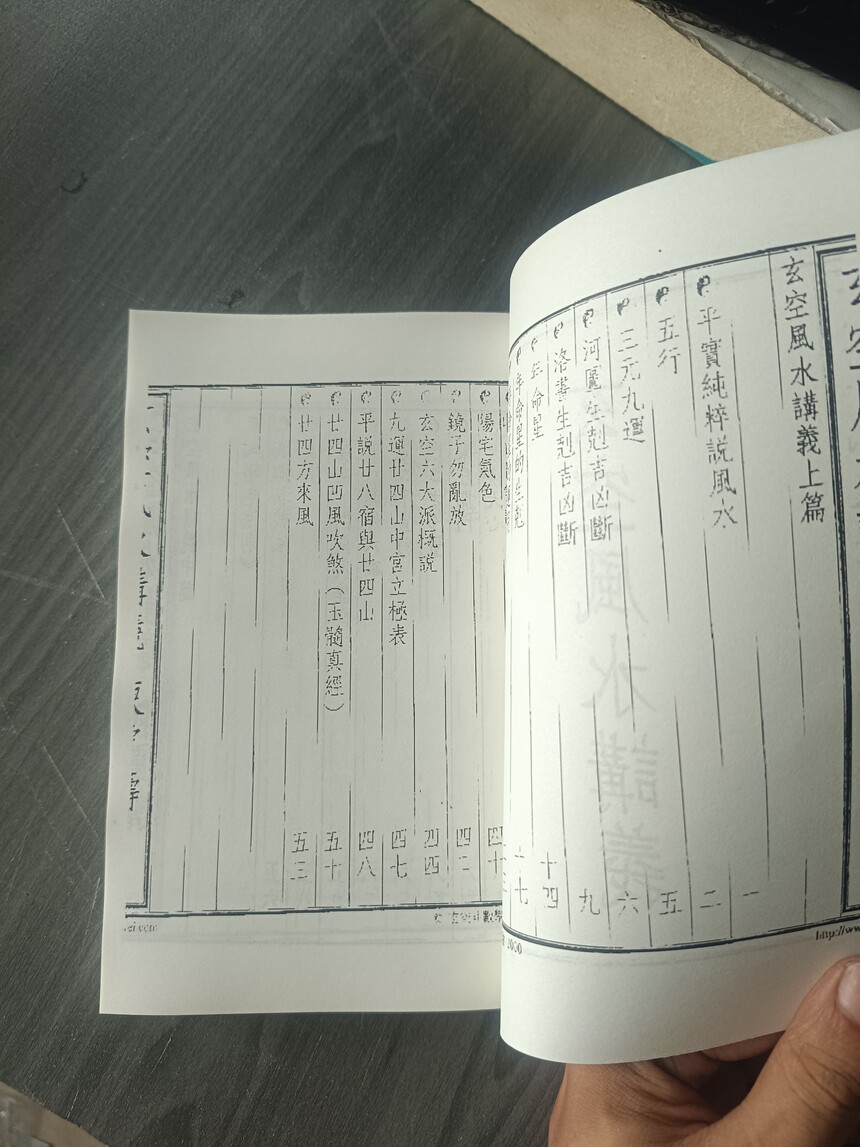 玄空風水講義上篇 一
平實純粹說風水 二
五行 五
三元九運 六
河圖生剋吉凶斷 九
洛書生剋吉凶斷 十四
年命星
年命星的生剋
http://www
2000
陽宅氣色 四十
鏡子勿亂放 四二
玄空六大派概說 四四
九運廿四山中宮立極表 四七
平說廿八宿與廿四山 四八
廿四山凹風吹煞（玉髓真經） 五十
廿四方來風 五三